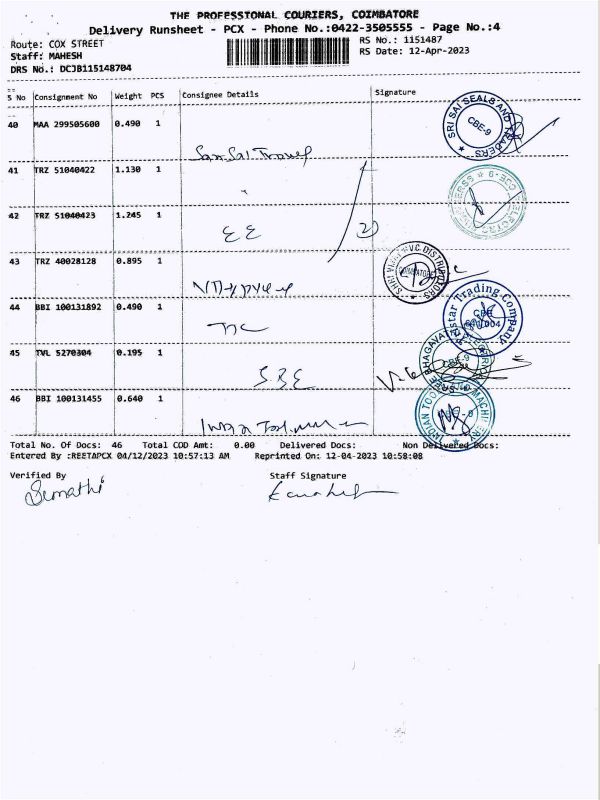 THE PROFESSIONAL COURIERS, COIMBATORE
Delivery Runsheet - PCX - Phone No.:0422-3505555 - Page No.:4
Route: COX STREET RS No.: 1151487
Staff: MAHESH RS Date: 12-Apr-2023
DRS No.: DCJB115148704
S No Consignment No Weight PCS Consignee Details Signature
40 MAA 299505600 0.490 1
SRI SAI SEALS AND TRADERS CBE-9
41 TRZ 51040422 1.130 1
42 TRZ 51040423 1.245 1
EE 2)
43 TRZ 40028128 0.895 1
V.C. DISTRIBUTORS COIMBATORE
44 BBI 100131892 0.490 1
Trading Company CBE
45 TVL 5270304 0.195 1
SBE
SREE BHAGAVATHI CBE-9
46 BBI 100131455 0.640 1
INDIAN TOOLS AND MACHINERY
Total No. Of Docs: 46 Total COD Amt: 0.00 Delivered Docs: Non Delivered Docs:
Entered By :REETAPCX 04/12/2023 10:57:13 AM Reprinted On: 12-04-2023 10:58:08
Verified By Staff Signature